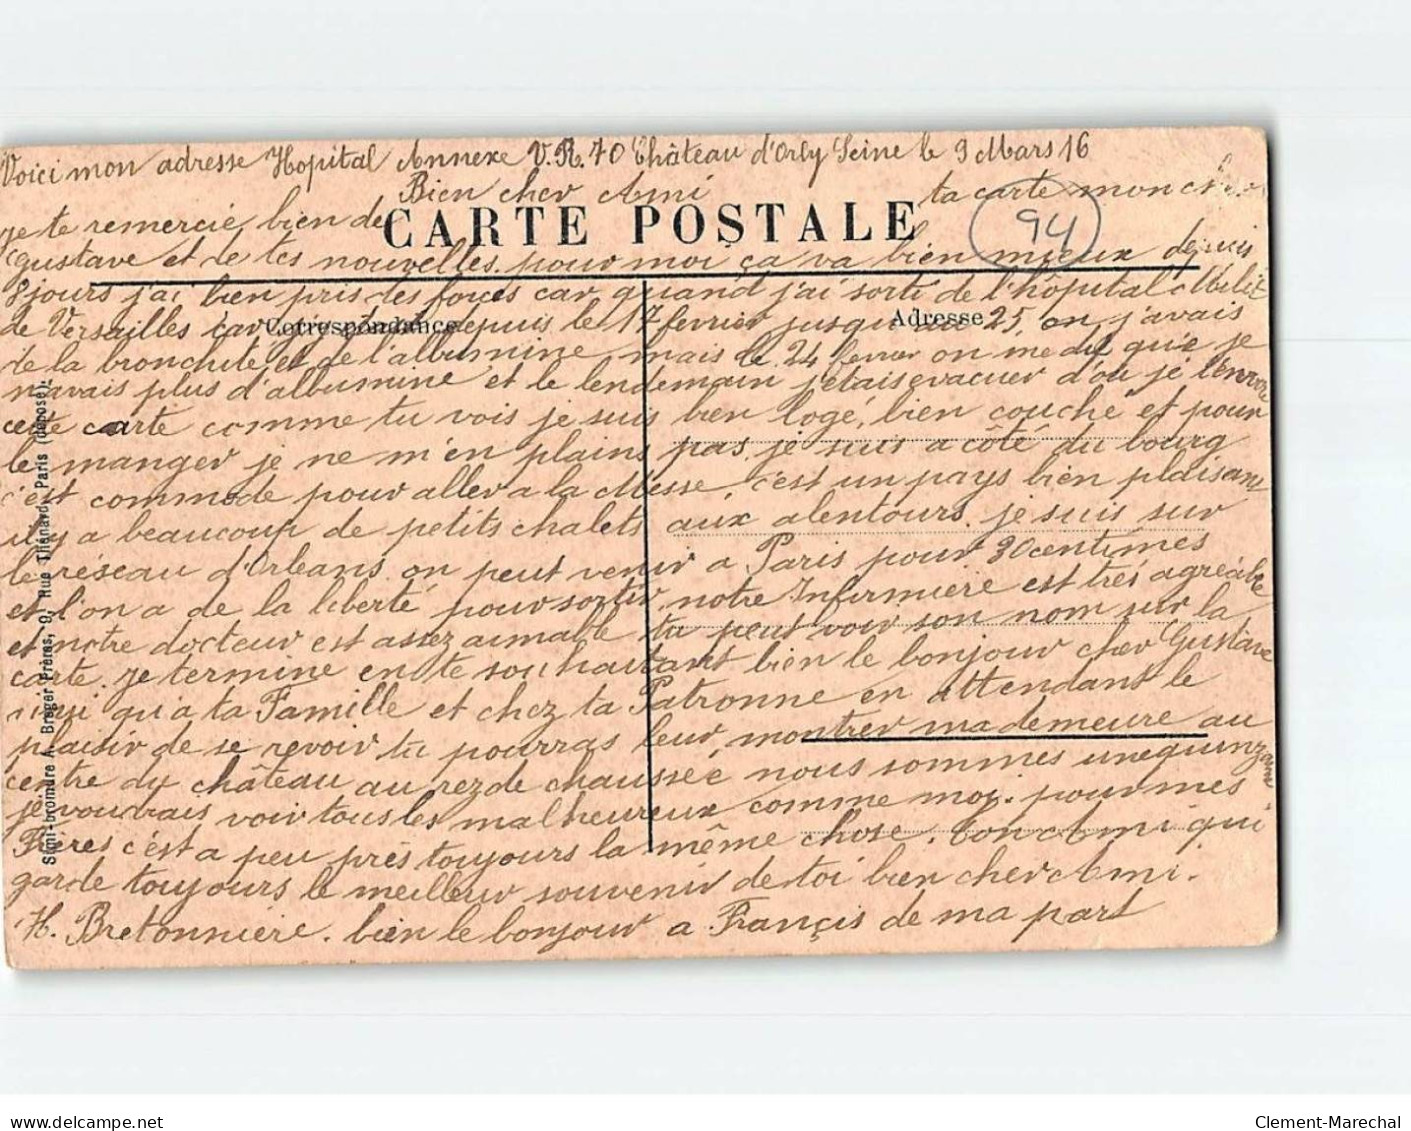 Voici mon adresse Hopital Annexe V.R. 70 Château d'Orly Seine le 9 Mars 16
Bien cher Ami
je te remercie bien de ta carte mon cher
CARTE POSTALE
94
Gustave et de tes nouvelles. pour moi ça va bien mieux depuis
8 jours j'ai bien pris des forces car quand j'ai sorti de l'hôpital Milit
Correspondance
Adresse
de Versailles car depuis le 17 fevrier jusqu'au 25, on j'avais
de la bronchite et de l'albumine, mais le 24 fevrier on me dit que je
n'avais plus d'albumine et le lendemain j'étais evacuer d'où je t'envoie
cette carte comme tu vois je suis bien logé, bien couché et pour
le manger je ne m'en plains pas, je suis a côté du bourg
c'est commode pour aller a la Messe, c'est un pays bien plaisant
il y a beaucoup de petits chalets aux alentours. je suis sur
le réseau d'Orléans on peut venir a Paris pour 30 centimes
et l'on a de la liberté pour sortir, notre Infirmière est très agréable
et notre docteur est assez aimable tu peut voir son nom sur la
carte. je termine en te souhaitant bien le bonjour cher Gustave
ainsi qu'a ta Famille et chez ta Patronne en attendant le
plaisir de se revoir tu pourras leur, montrer ma demeure au
centre du château au rez de chaussée nous sommes une quinzaine
je voudrais voir tous les malheureux comme moi. pour mes
Frères c'est a peu près toujours la même chose. ton Ami qui
garde toujours le meilleur souvenir de toi bien cher Ami.
H. Bretonnière. bien le bonjour a Françis de ma part
Simi-bromure A. Breger Frères, 9, Rue Thénard, Paris (déposé).
Clement-Marechal